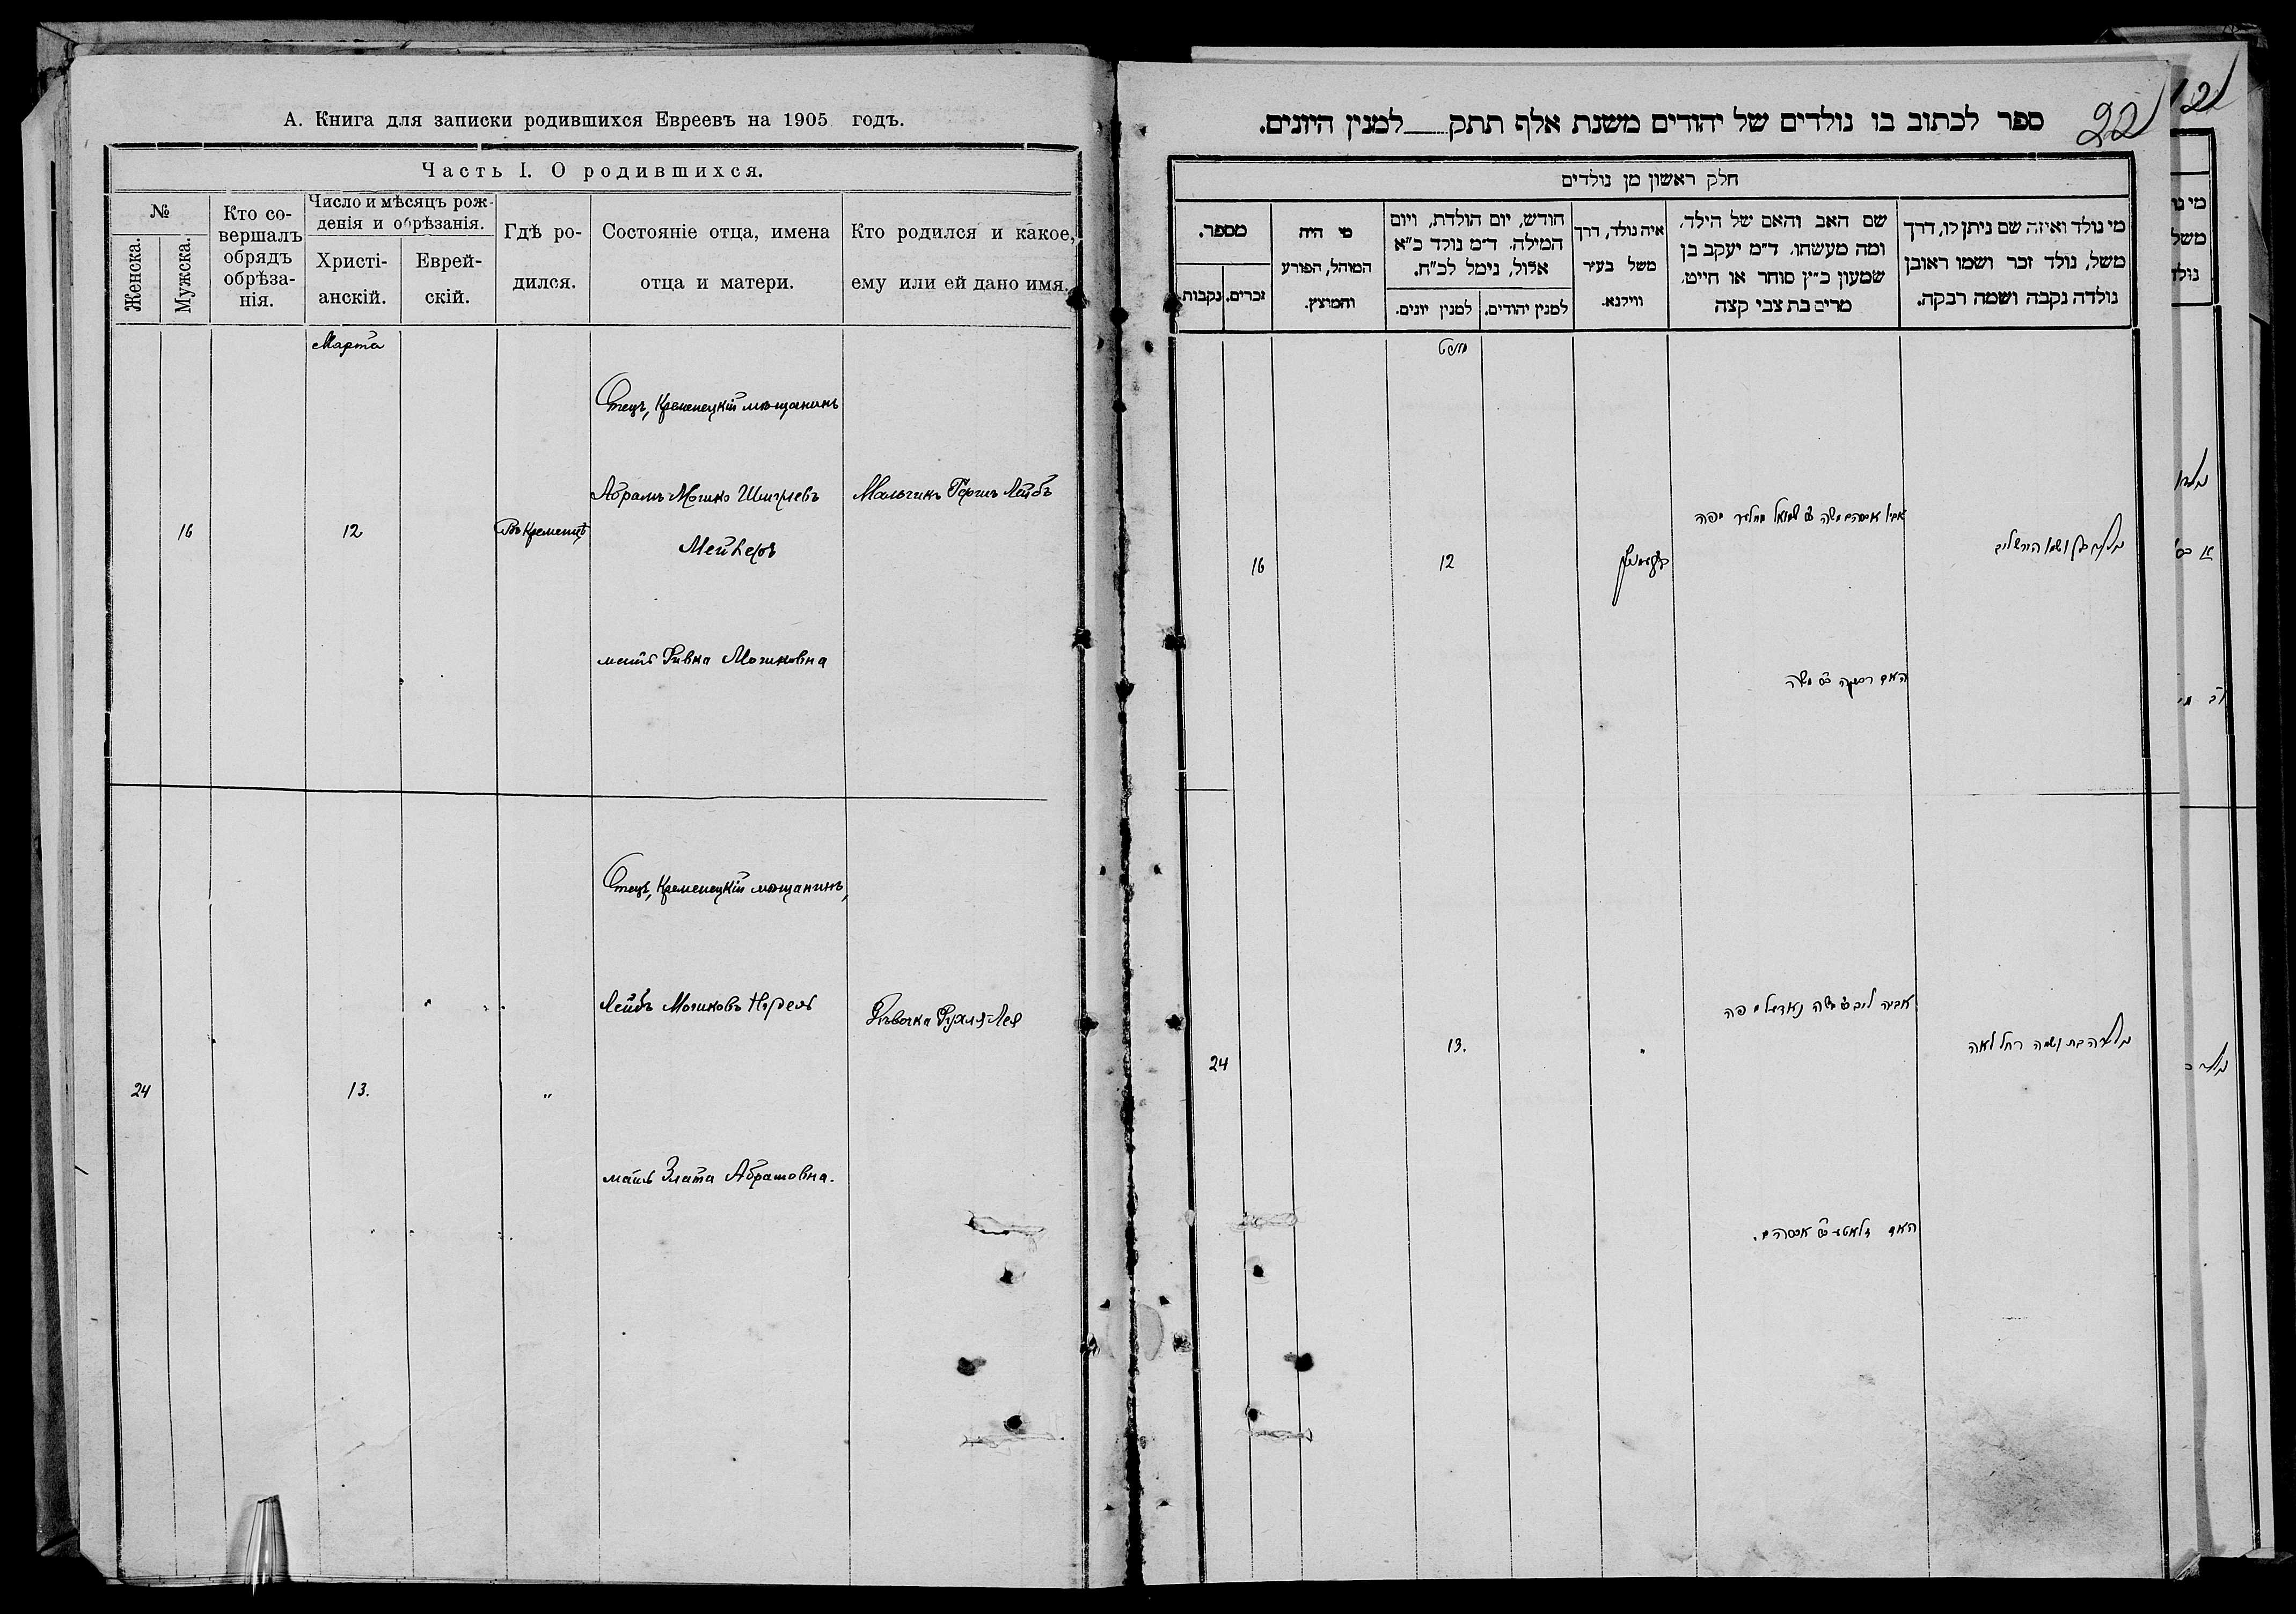 А. Книга для записки родившихся Евреевъ на 1905 годъ.
Часть I. О родившихся.
№
Женска.
Мужска.
Кто со-
вершалъ
обрядъ
обрѣза-
нія.
Число и мѣсяцъ рож-
денія и обрѣзанія.
Христі-
анскій.
Еврей-
скій.
Гдѣ ро-
дился.
Состояніе отца, имена
отца и матери.
Кто родился и какое,
ему или ей дано имя.
Марта
Отецъ, Кременецкій мѣщанинъ
Абрамъ-Мошко
Мальчикъ Герш Лейбъ
16
12
Въ Кременцѣ
мать Ривка Мошковна
Отецъ, Кременецкій мѣщанинъ,
Лейбъ Мошковъ
Дѣвочка Рухля-Лея
24
13.
"
мать Злата Абрамовна.
22
ספר לכתוב בו נולדים של יהודים משנת אלף תתק למנין היונים.
חלק ראשון מן נולדים
מי נולד ואיזה שם ניתן לו, דרך
משל, נולד זכר ושמו ראובן
נולדה נקבה ושמה רבקה.
שם האב והאם של הילד,
ומה מעשהו. ד״מ יעקב בן
שמעון כ״ץ סוחר או חייט,
מרים בת צבי קצה
איה נולד, דרך
משל בעיר
ווילנא.
חודש, יום הולדת, ויום
המילה. ד״מ נולד כ״א
אלול, נימל לכ״ח.
למנין יהודים.
למנין יונים.
מי היה
המוהל, הפורע
והמוצץ.
מספר.
זכרים.
נקבות.
מארט
16
12
האם רבקה בת משה
13.
24
נולדה בת ושמה רחל לאה
האם זלאטע בת אברהם.